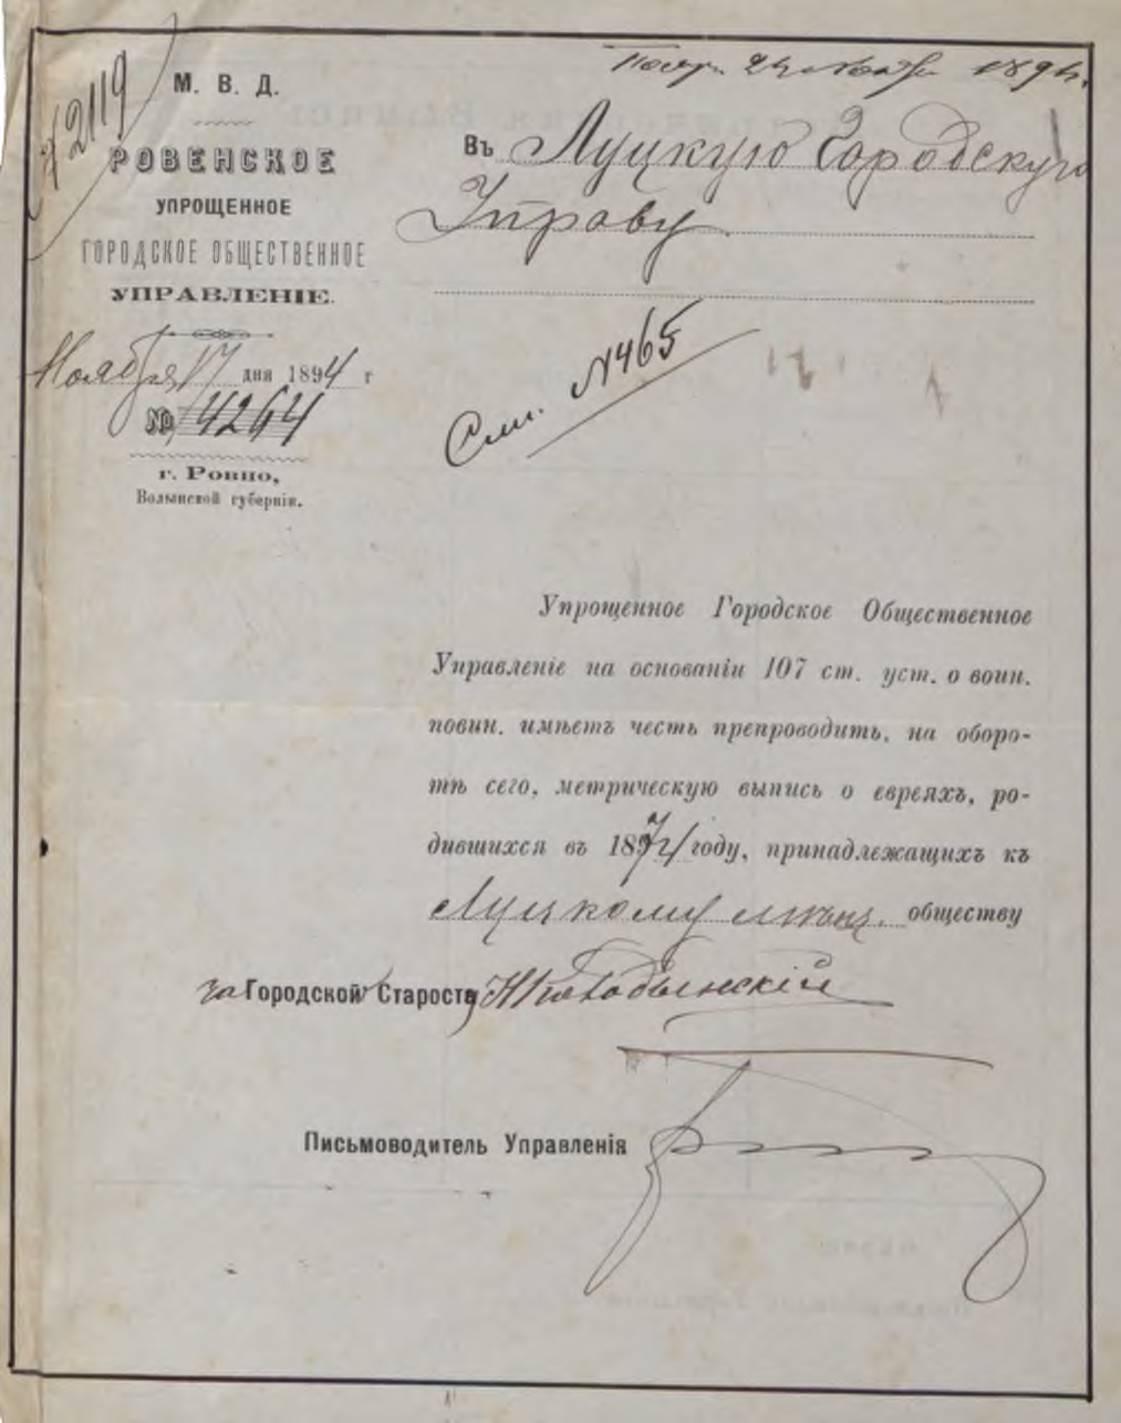 № 2119
М. В. Д.
РОВЕНСКОЕ
УПРОЩЕННОЕ
ГОРОДСКОЕ ОБЩЕСТВЕННОЕ
УПРАВЛЕНІЕ.
Ноября 17 дня 1894 г
№ 4264
г. Ровно,
Волынской губерніи.
1894
Въ Луцкую Городскую
Управу
См. № 465
Упрощенное Городское Общественное
Управленіе на основаніи 107 ст. уст. о воин.
повин. имѣетъ честь препроводить, на оборо-
тѣ сего, метрическую выпись о евреяхъ, ро-
дившихся въ 1874 году, принадлежащихъ къ
Луцкому мѣщ. обществу
за Городской Староста
Письмоводитель Управленія